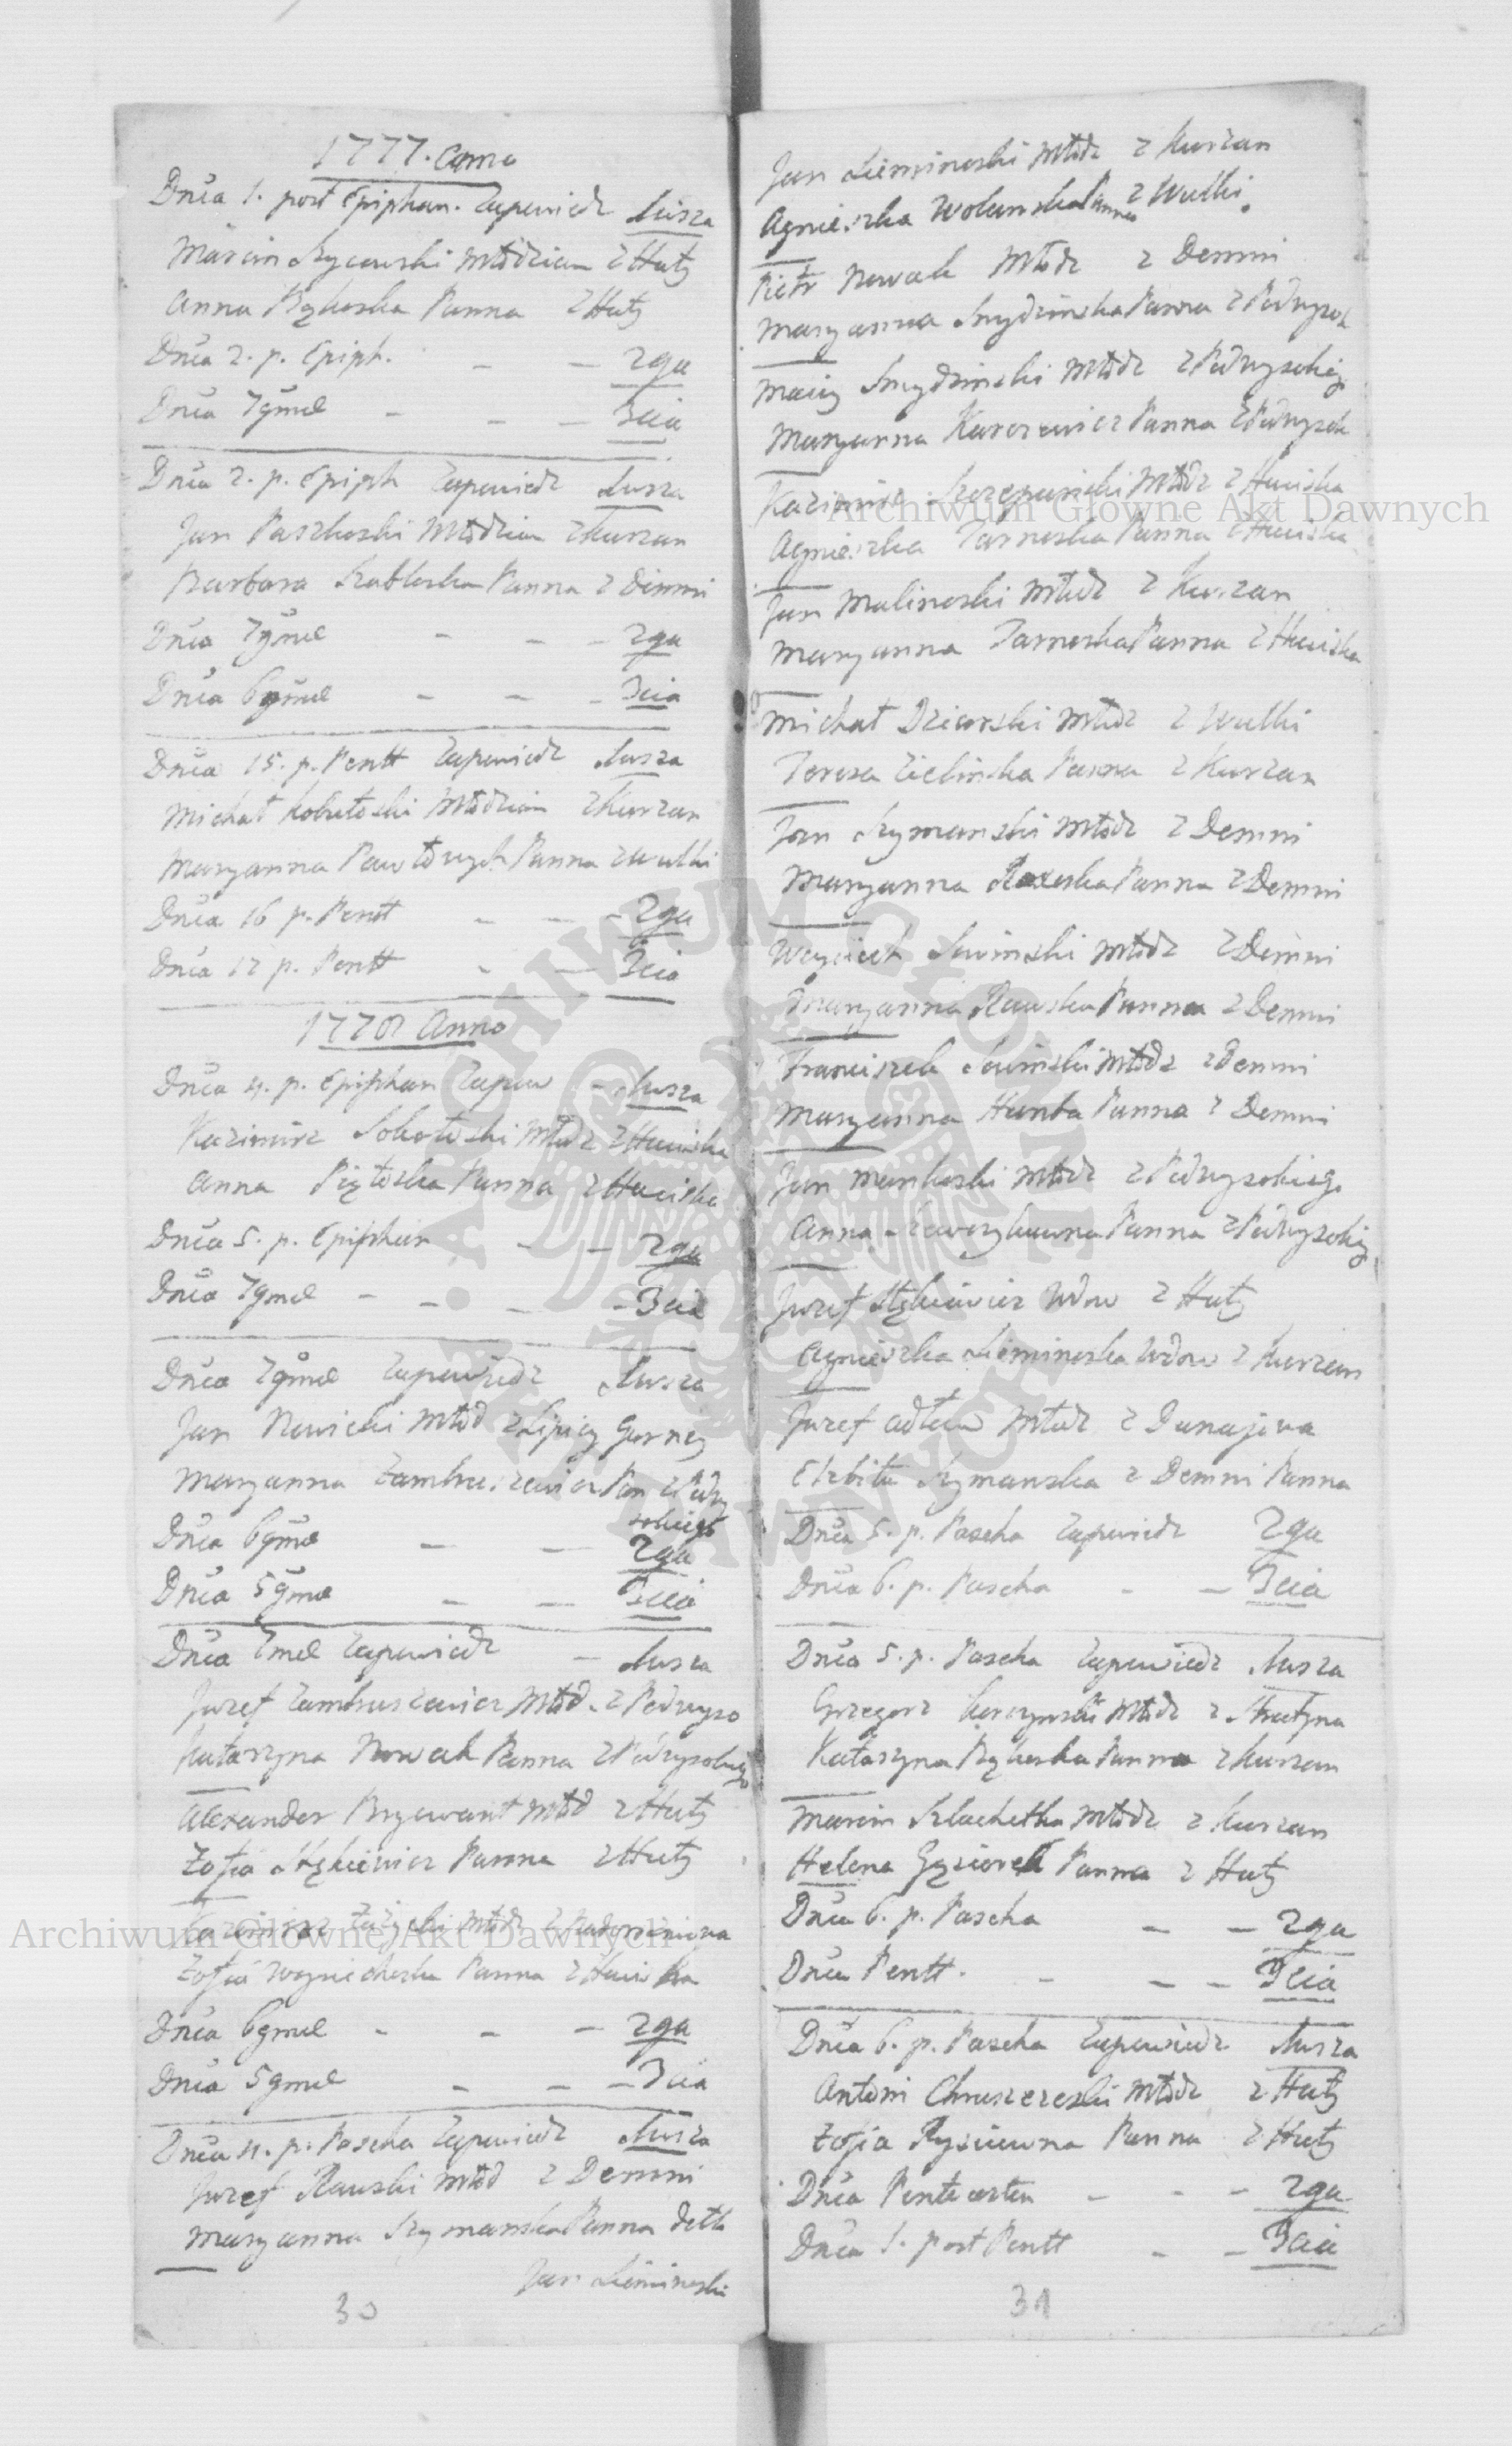 1777. Anno
Dnica 1. post Epiphan. Zapowiedz 1wsza
Marcin Szycowski Młodzian z Huty
Anna Bąkoska Panna z Huty
Dnica 2. p. Epiph. - - 2ga
Dnica 7gmae - - 3cia
Dnica 2. p. Epiph Zapowiedz 1wsza
Jan Paszkoski Młodzian z Kurzan
Barbara Szabloska Panna z Demni
Dnica 7gmae - - - 2ga
Dnica 6gmae - - - 3cia
Dnica 15. p. Pentt Zapowiedz 1wsza
Michał Kobułoski Młodzian z Kurzan
Maryanna Pawłowych Panna z Wulki
Dnica 16 p. Pentt - - - 2ga
Dnica 17 p. Pentt - - 3cia
1778 Anno
Dnica 4. p. Epiphan Zapow - 1wsza
Kazimirz Sobotoski Młodz z Huciska
Anna Piątoska Panna z Huciska
Dnica 5. p. Epiphan - - 2ga
Dnica 7gmae - - - - 3cia
Dnica 7gmae Zapowiedz 1wsza
Jan Nowicki Młod z Lipicy Gorney
Maryanna Zambruszewicz Pan z Podwy
sokiego
Dnica 6gmae - - 2ga
Dnica 5gmae - - 3cia
Dnica 7mae Zapowiedz - 1wsza
Juzef Zambruszewicz Młod. z Podwyso
Katarzyna Nowak Panna z Podwysokiego
Alexander Brzewant Młod z Huty
Zofia Stękiewicz Panna z Huty
Kazimirz Młodz
Zofia Woyciechoska Panna z Huciska
Dnica 6gmae - - - 2ga
Dnica 5gmae - - - 3cia
Dnica 4. p. Pascha Zapowiedz 1wsza
Juzef Rauski Młod z Demni
Maryanna Szymanska Panna detto
Jan Sieminoski
30
Jan Sieminoski Młodz z Kurzan
Agnieszka Wolanska Panna z Wulki.
Piotr Nowak Młodz z Demni
Maryanna Smydzinska Panna z Podwysok
Maciy Smydzinski Młodz z Podwysokieg
Maryanna Karczewicz Panna z Podwysok
Kazimirz Szczepanicki Młodz z Huciska
Agnieszka Tarnoska Panna z Huciska
Jan Malinoski Młodz z Kurzan
Maryanna Tarnoska Panna z Huciska
Michał Dziewski Młodz z Wulki
Teresa Zielinska Panna z Kurzan
Jan Szymanski Młodz z Demni
Maryanna Panna z Demni
Woyciech Siwinski Młodz z Demni
Maryanna Rauska Panna z Demni
Franciszek Siwinski Młodz z Demni
Maryanna Hanba Panna z Demni
Jan Mankoski Młodz z Podwysokiego
Anna Panna z Podwysokieg
Juzef Stękiewicz Wdow z Huty
Agnieszka Sieminoska Wdow z Kurzan
Juzef Adłem Młodz z Dunajowa
Elzbita Szymanska z Demni Panna
Dnica 5. p. Pascha Zapowiedz 2ga
Dnica 6. p. Pascha - - 3cia
Dnica 5. p. Pascha Zapowiedz 1wsza
Grzegorz Korczynski Młodz z Strutyna
Katarzyna Bąkoska Panna z Kurzan
Marcin Szlachetka Młodz z Kurzan
Helena Gąsiorek Panna z Huty
Dnica 6. p. Pascha - - 2ga
Dnica Pentt. - - - 3cia
Dnica 6. p. Pascha Zapowiedz 1wsza
Antoni Chruszczeski Młodz z Huty
Zofia Rysiowna Panna z Huty
Dnica Pentecosten - - - 2ga
Dnica 1. post Pentt - - 3cia
31
Archiwum Główne Akt Dawnych
Archiwum Główne Akt Dawnych
ARCHIWUM GŁÓWNE AKT DAWNYCH